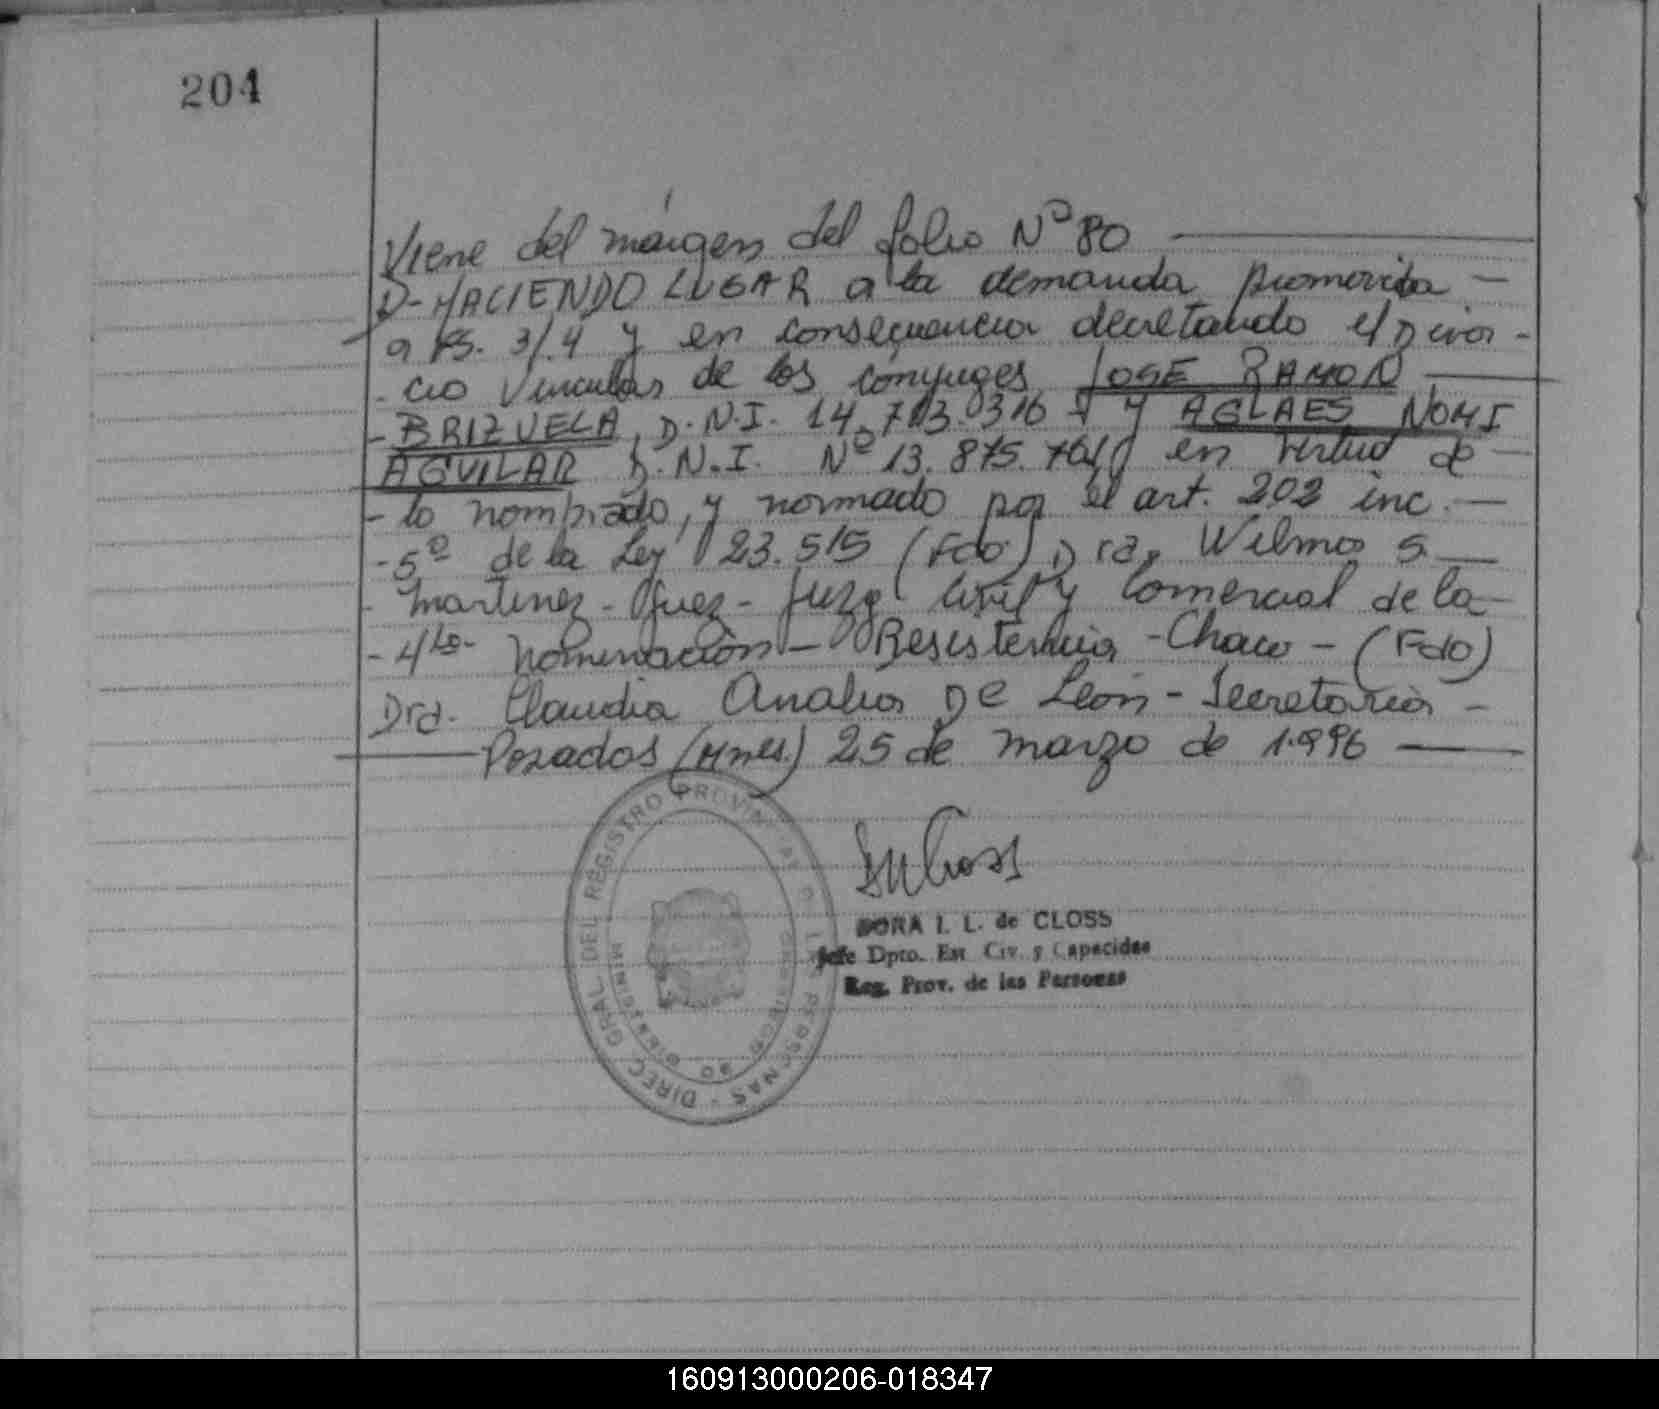 204
Viene del márgen del folio Nº 80
D- HACIENDO LUGAR a la demanda promovida -
a fs. 3/.4 y en consecuencia decretando el Divor -
- cio Vincular de los conyuges JOSE RAMON
- BRIZUELA, D.N.I. 14.713.316 - y AGLAES NOMI
AGUILAR D.N.I. Nº 13.875.761 en virtud de -
- lo nomprado, y normado por el art. 202 inc. -
- 5º de la Ley 23.515 (Fdo) Dra. Wilma S.
- Martinez - Juez - Juzg Civil y Comercial de la -
- 4ta - Nominación - Resistencia - Chaco - (Fdo)
Dra. Claudia Analia De León - Secretaria -
Posadas (Mnes.) 25 de Marzo de 1.996
DIREC GRAL DEL REGISTRO PROVINCIAL D LAS PERSONAS -
MINISTERIO DE GOBIERNO
DORA I. L. de CLOSS
Jefe Dpto. Est. Civ. y Capacidad
Reg. Prov. de las Personas
160913000206-018347